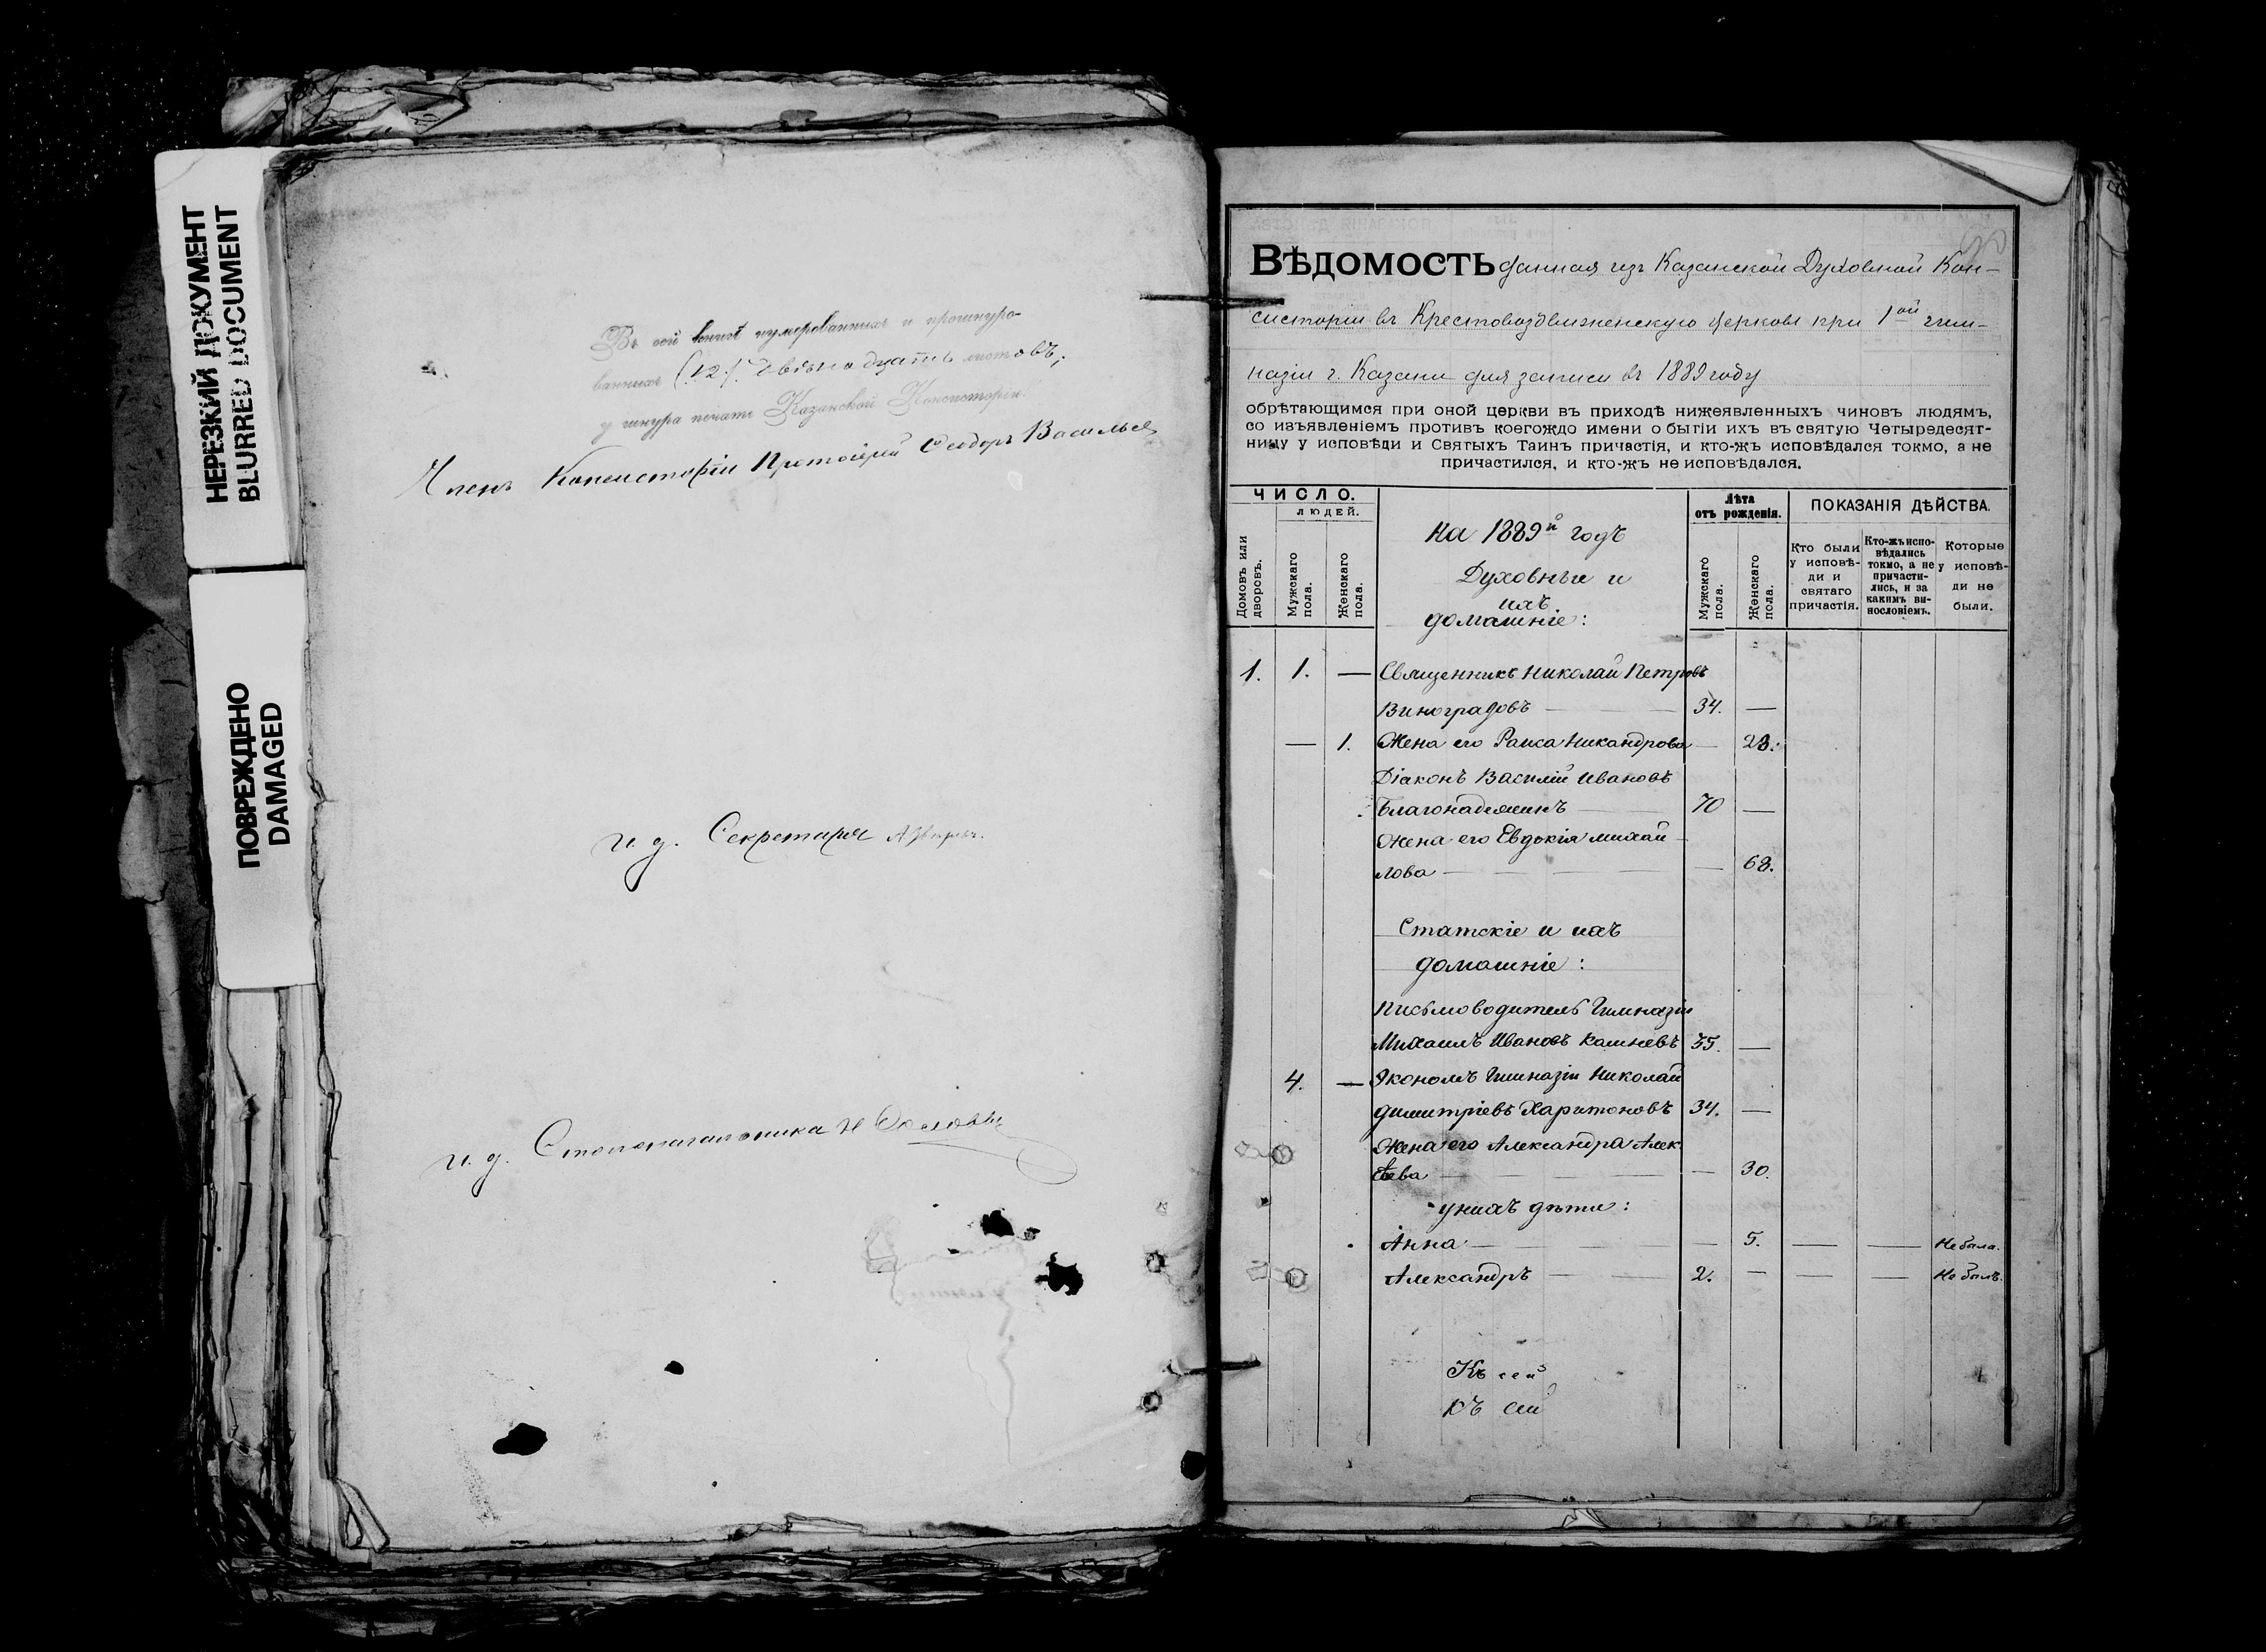 НЕРЕЗКИЙ ДОКУМЕНТ
BLURRED DOCUMENT
ПОВРЕЖДЕНО
DAMAGED
Въ сей книгѣ нумерованныхъ и прошнуро-
ванныхъ (12) двѣнадцать листовъ;
у шнура печать Казанской Консисторіи.
Членъ Консисторіи Протоіерей Ѳеодоръ Васильев
и. д. Секретаря
и. д. Столоначальника
ВѢДОМОСТЬ данная изъ Казанской Духовной Кон-
систоріи въ Крестовоздвиженскую церковь при 1ой гим-
назіи г. Казани для записи въ 1889 году
обрѣтающимся при оной церкви въ приходѣ нижеявленныхъ чиновъ людямъ,
со изъявленіемъ противъ коегождо имени о бытіи ихъ въ святую Четыредесят-
ницу у исповѣди и Святыхъ Таинъ причастія, и кто-жъ исповѣдался токмо, а не
причастился, и кто-жъ не исповѣдался.
ЧИСЛО.
ЛЮДЕЙ.
Домовъ или дворовъ.
Мужскаго пола.
Женскаго пола.
На 1889й годъ
Духовные и
ихъ
домашніе:
Лѣта
отъ рожденія.
Мужскаго пола.
Женскаго пола.
ПОКАЗАНІЯ ДѢЙСТВА.
Кто были у исповѣ-ди и святаго причастія.
Кто-жъ испо-вѣдались токмо, а не причасти-лись, и за какимъ ви-нословіемъ.
Которые у исповѣ-ди не были.
1. 1. — Священникъ Николай Петровъ
Виноградовъ — 34. —
— 1. Жена его Раиса Никандрова — 23.
Діаконъ Василій Ивановъ
Благонадеждинъ 70 —
Жена его Евдокія Михай-
лова — — 68.
Статскіе и ихъ
домашніе:
Письмоводитель Гимназіи
Михаилъ Ивановъ Кашневъ 35. —
4. — Экономъ Гимназіи Николай
Димитріевъ Харитоновъ 34. —
Жена его Александра Алек
сѣева — — 30.
у нихъ дѣти:
Анна — — 5. — — Не была.
Александръ — 2. — — — Не былъ.
Къ сей
Къ сей